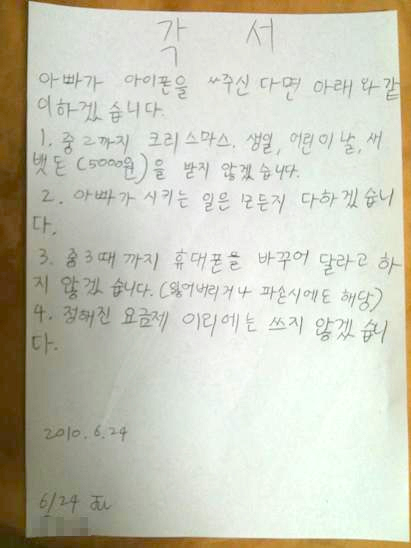 각 서
아빠가 아이폰을 사주신다면 아래와 같
이하겠습니다.
1. 중2까지 크리스마스. 생일, 어린이날, 새
뱃돈(5000원)을 받지 않겠습니다.
2. 아빠가 시키는 일은 모든지 다하겠습니
다.
3. 중3때까지 휴대폰을 바꾸어 달라고 하
지 않겠습니다. (잃어버리거나 파손시에도 해당)
4. 정해진 요금제 이외에는 쓰지 않겠습니
다.
2010.6.24
6/24